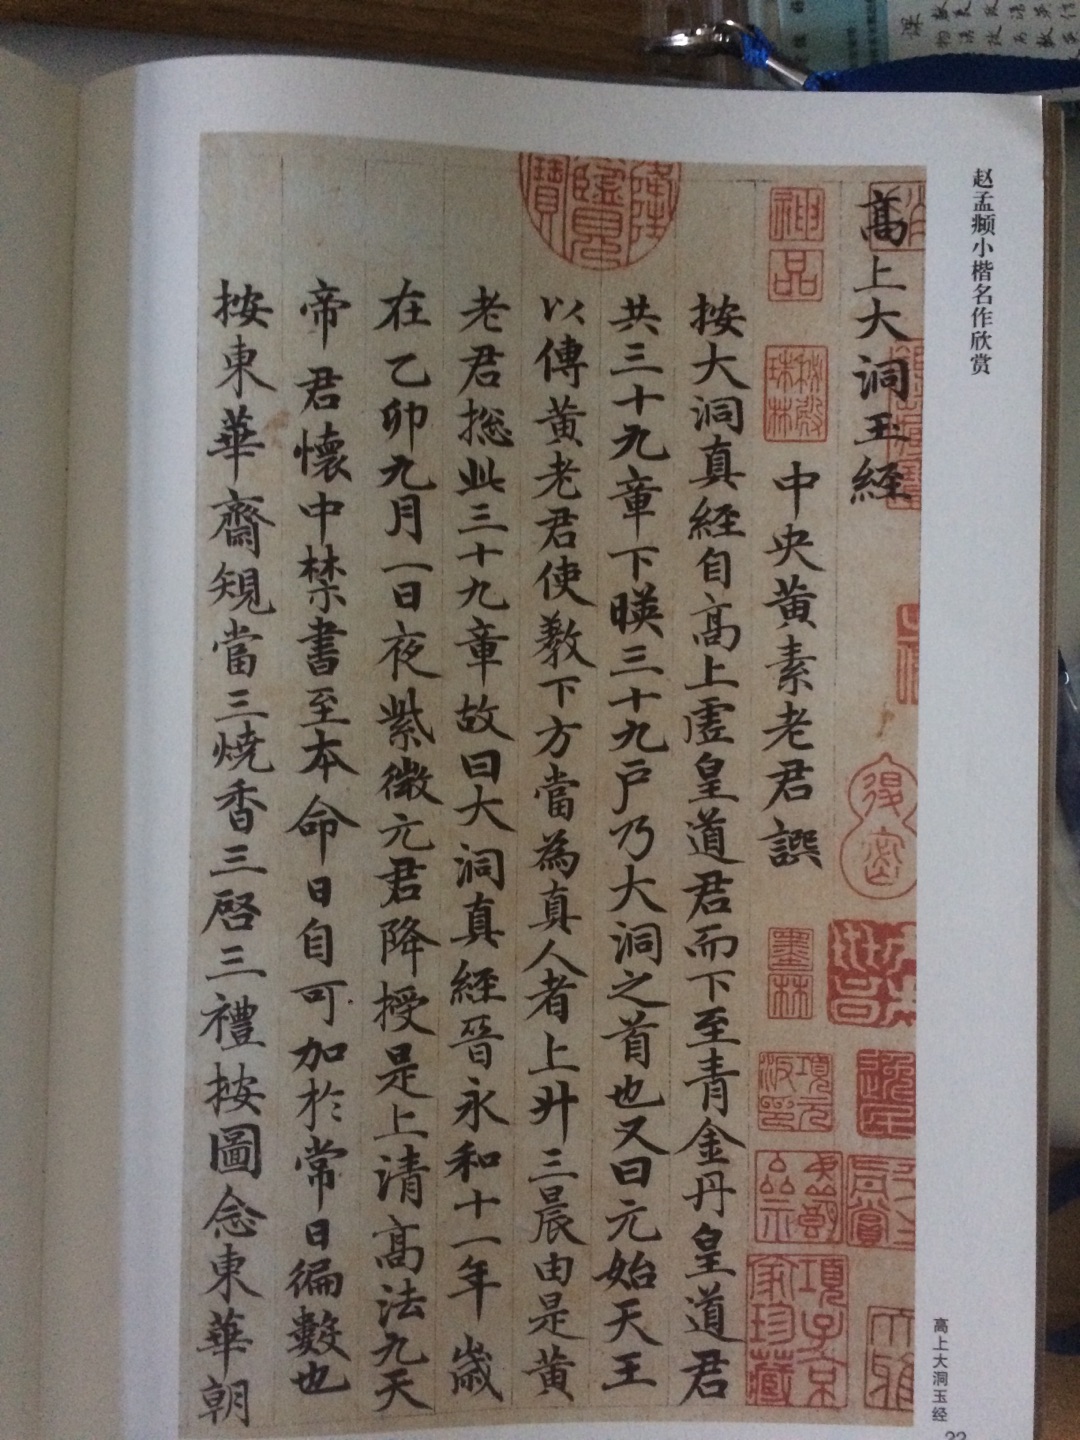 赵孟頫小楷名作欣赏
高上大洞玉經
中央黃素老君譔
按大洞真經自高上虛皇道君而下至青金丹皇道君
共三十九章下暎三十九戶乃大洞之首也又曰元始天王
以傳黃老君使教下方當為真人者上升三晨由是黃
老君揔此三十九章故曰大洞真經晉永和十一年歲
在乙卯九月一日夜紫微元君降授是上清高法九天
帝君懷中禁書至本命日自可加於常日徧數也
按東華齋規當三燒香三啓三禮按圖念東華朝
神品
墨林
項子京
家珍藏
乾隆
高上大洞玉经